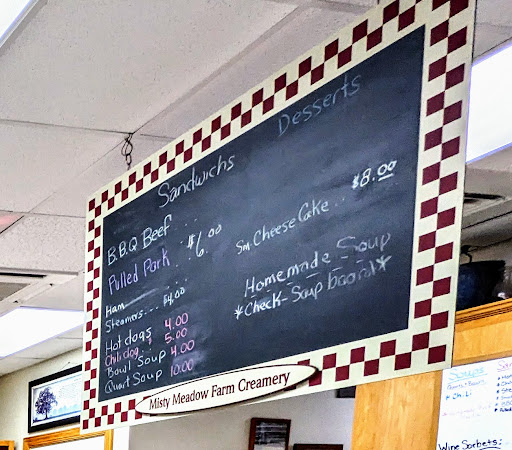 Sandwichs
B.B.Q Beef . . .
Pulled Pork . . $6.00
Ham
Steamers . . . $4.00
Hot dogs 4.00
Chili dog . . . 5.00
Bowl Soup 4.00
Quart Soup 10.00
Desserts
Sm. Cheese Cake . . $8.00
Homemade Soup
*Check-Soup board*
Misty Meadow Farm Creamery
Soups
Chili
Wine Sorbets: